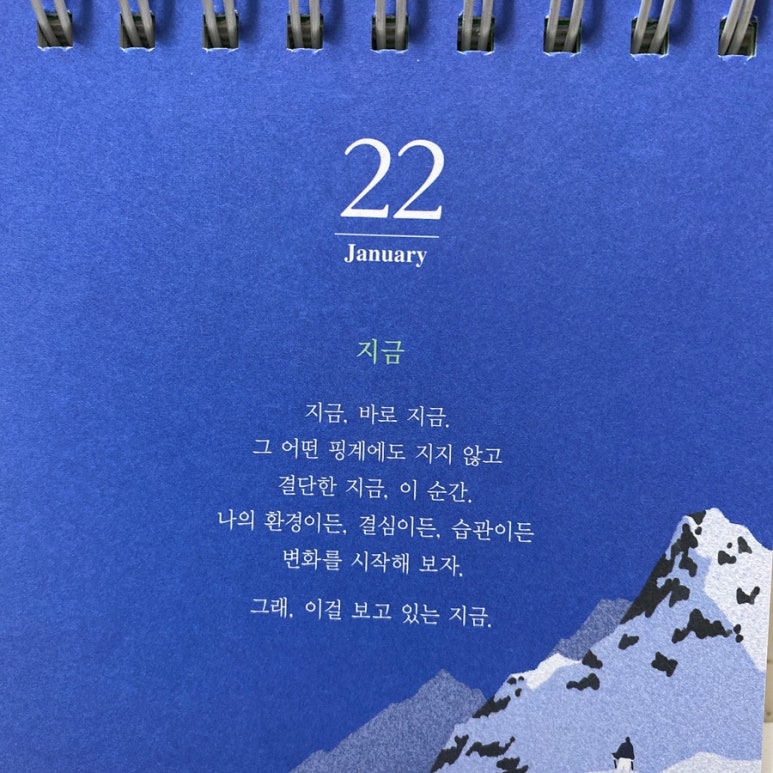 22
January
지금
지금, 바로 지금.
그 어떤 핑계에도 지지 않고
결단한 지금, 이 순간.
나의 환경이든, 결심이든, 습관이든
변화를 시작해 보자.
그래, 이걸 보고 있는 지금.